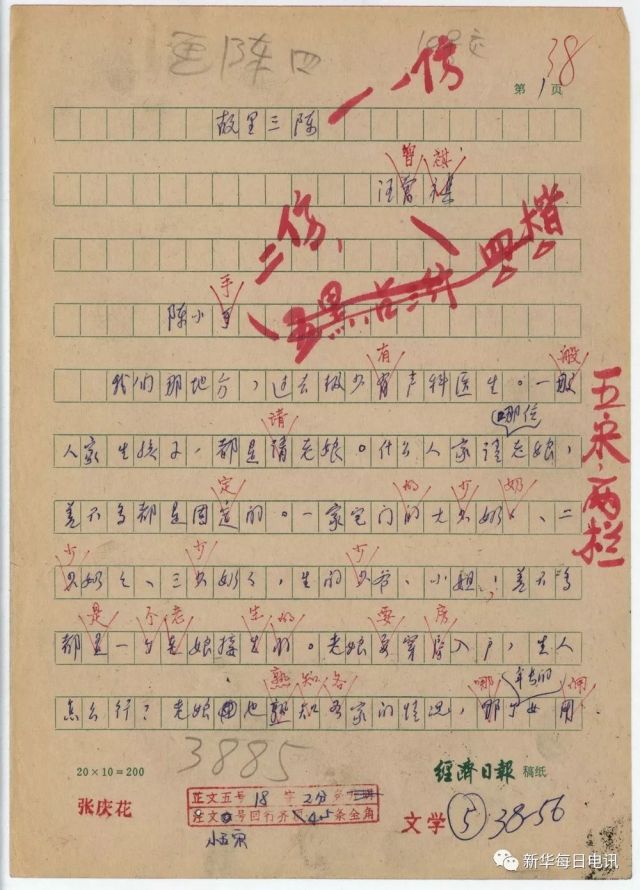 38
第1页
一、仿
故里三陈
曾祺
汪曾祺
二仿、
四楷
手
陈小手
有 般
我们那地方，过去极少有产科医生。一般
请 哪位
人家生孩子，都是请老娘。什么人家请老娘，
定 的 少 奶
差不多都是固定的。一家宅门的大少奶奶、二
少 少 少
少奶奶、三少奶奶，生的少爷、小姐，差不多
是 不老 生的 要 房
都是一个老娘接生的。老娘要穿房入户，生人
熟知各 哪 年长的 佣
怎么行？老娘也熟知各家的情况，哪个女用
五宋，两栏
3885
20×10=200
經濟日報 稿纸
张庆花
正文五号18字2分
小五宋
文学 ⑤ 38-56
新华每日电讯